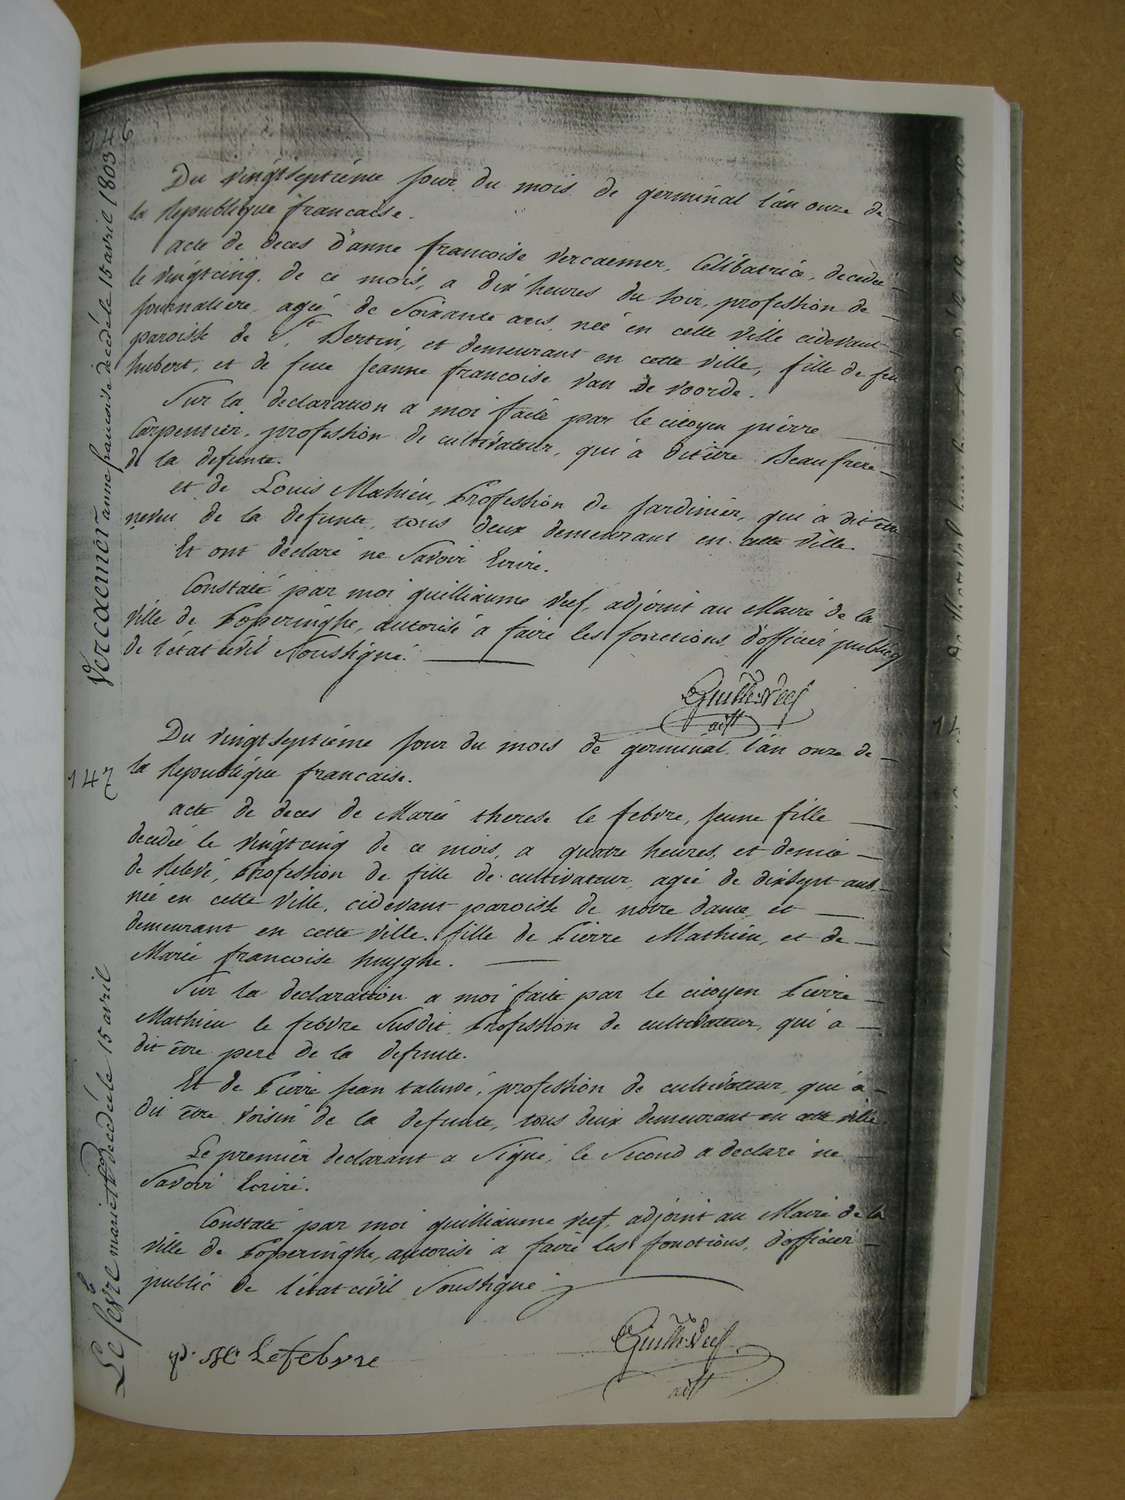 146
Vercaemer anne francoise decedé le 15 avril 1803
Du vingtseptiéme jour du mois de germinal l'an onze de
la Republique francaise.
acte de deces d'anne francoise vercaemer, Celibatrice, decedée
le vingtcinq de ce mois, a dix heures du soir, profession de
journaliere, ageé de soixante ans, neé en cette ville cidevant
paroisse de St. Bertin, et demeurant en cette ville, fille de feu
hubert, et de feue jeanne francoise van de voorde.
Sur la declaration a moi faite par le citoyen pierre
Carpentier, profession de cultivateur, qui a dit être Beaufrere
de la defunte.
et de Louis Mahieu, Profession de jardinier, qui a dit être
neveu de la defunte, tous deux demeurant en cette ville.
Et ont declaré ne savoir Ecrire.
Constaté par moi guilliaume veef, adjoint au Maire de la
ville de Poperinghe, autorisé a faire les fonctions d'officier publicq
de l'état civil soussigné.
Guille. Veef
adjt
147
Le febvre marie th decedé le 15 avril
Du vingtseptiéme jour du mois de germinal l'an onze de
la Republique francaise.
acte de deces de Marie therese le febvre, jeune fille
decedeé le vingtcinq de ce mois, a quatre heures, et demie
de Relevé, Profession de fille de cultivateur, ageé de dixsept ans
neé en cette ville, cidevant paroisse de notre dame, et
demeurant en cette ville, fille de Pierre Mathieu, et de
Marie francoise huyghe.
Sur la declaration a moi faite par le citoyen Pierre
Mathieu le febvre susdit, Profession de cultivateur, qui a
dit être pere de la defunte.
Et de Pierre jean, profession de cultivateur, qui a
dit être voisin de la defunte, tous deux demeurant en cette ville
Le premier declarant a signé, le second a declaré ne
savoir Ecrire.
Constaté par moi guilliaume veef, adjoint au Maire de la
ville de Poperinghe, autorisé a faire les fonctions, d'officier
public de l'état civil soussigné
Lefebvre
Guille. Veef
adjt